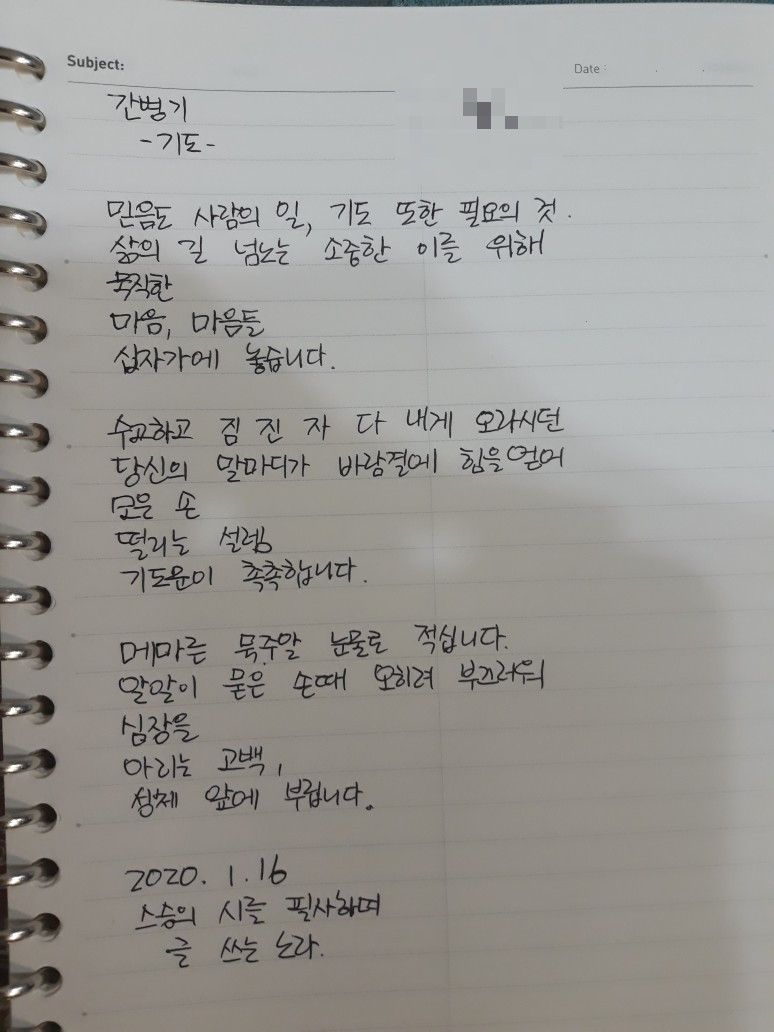 Subject:
Date :
간병기
-기도-
믿음도 사람의 일, 기도 또한 필요의 것.
삶의 길 넘노는 소중한 이를 위해
묵직한
마음, 마음들
십자가에 놓습니다.
수고하고 짐 진 자 다 내게 오라시던
당신의 말마디가 바람결에 힘을 얻어
모은 손
떨리는 설렘
기도문이 촉촉합니다.
메마른 묵주알 눈물로 적십니다.
알알이 묻은 손때 오히려 부끄러워
심장을
아리는 고백,
성체 앞에 부립니다.
2020. 1. 16
스승의 시를 필사하며
글 쓰는 노라.